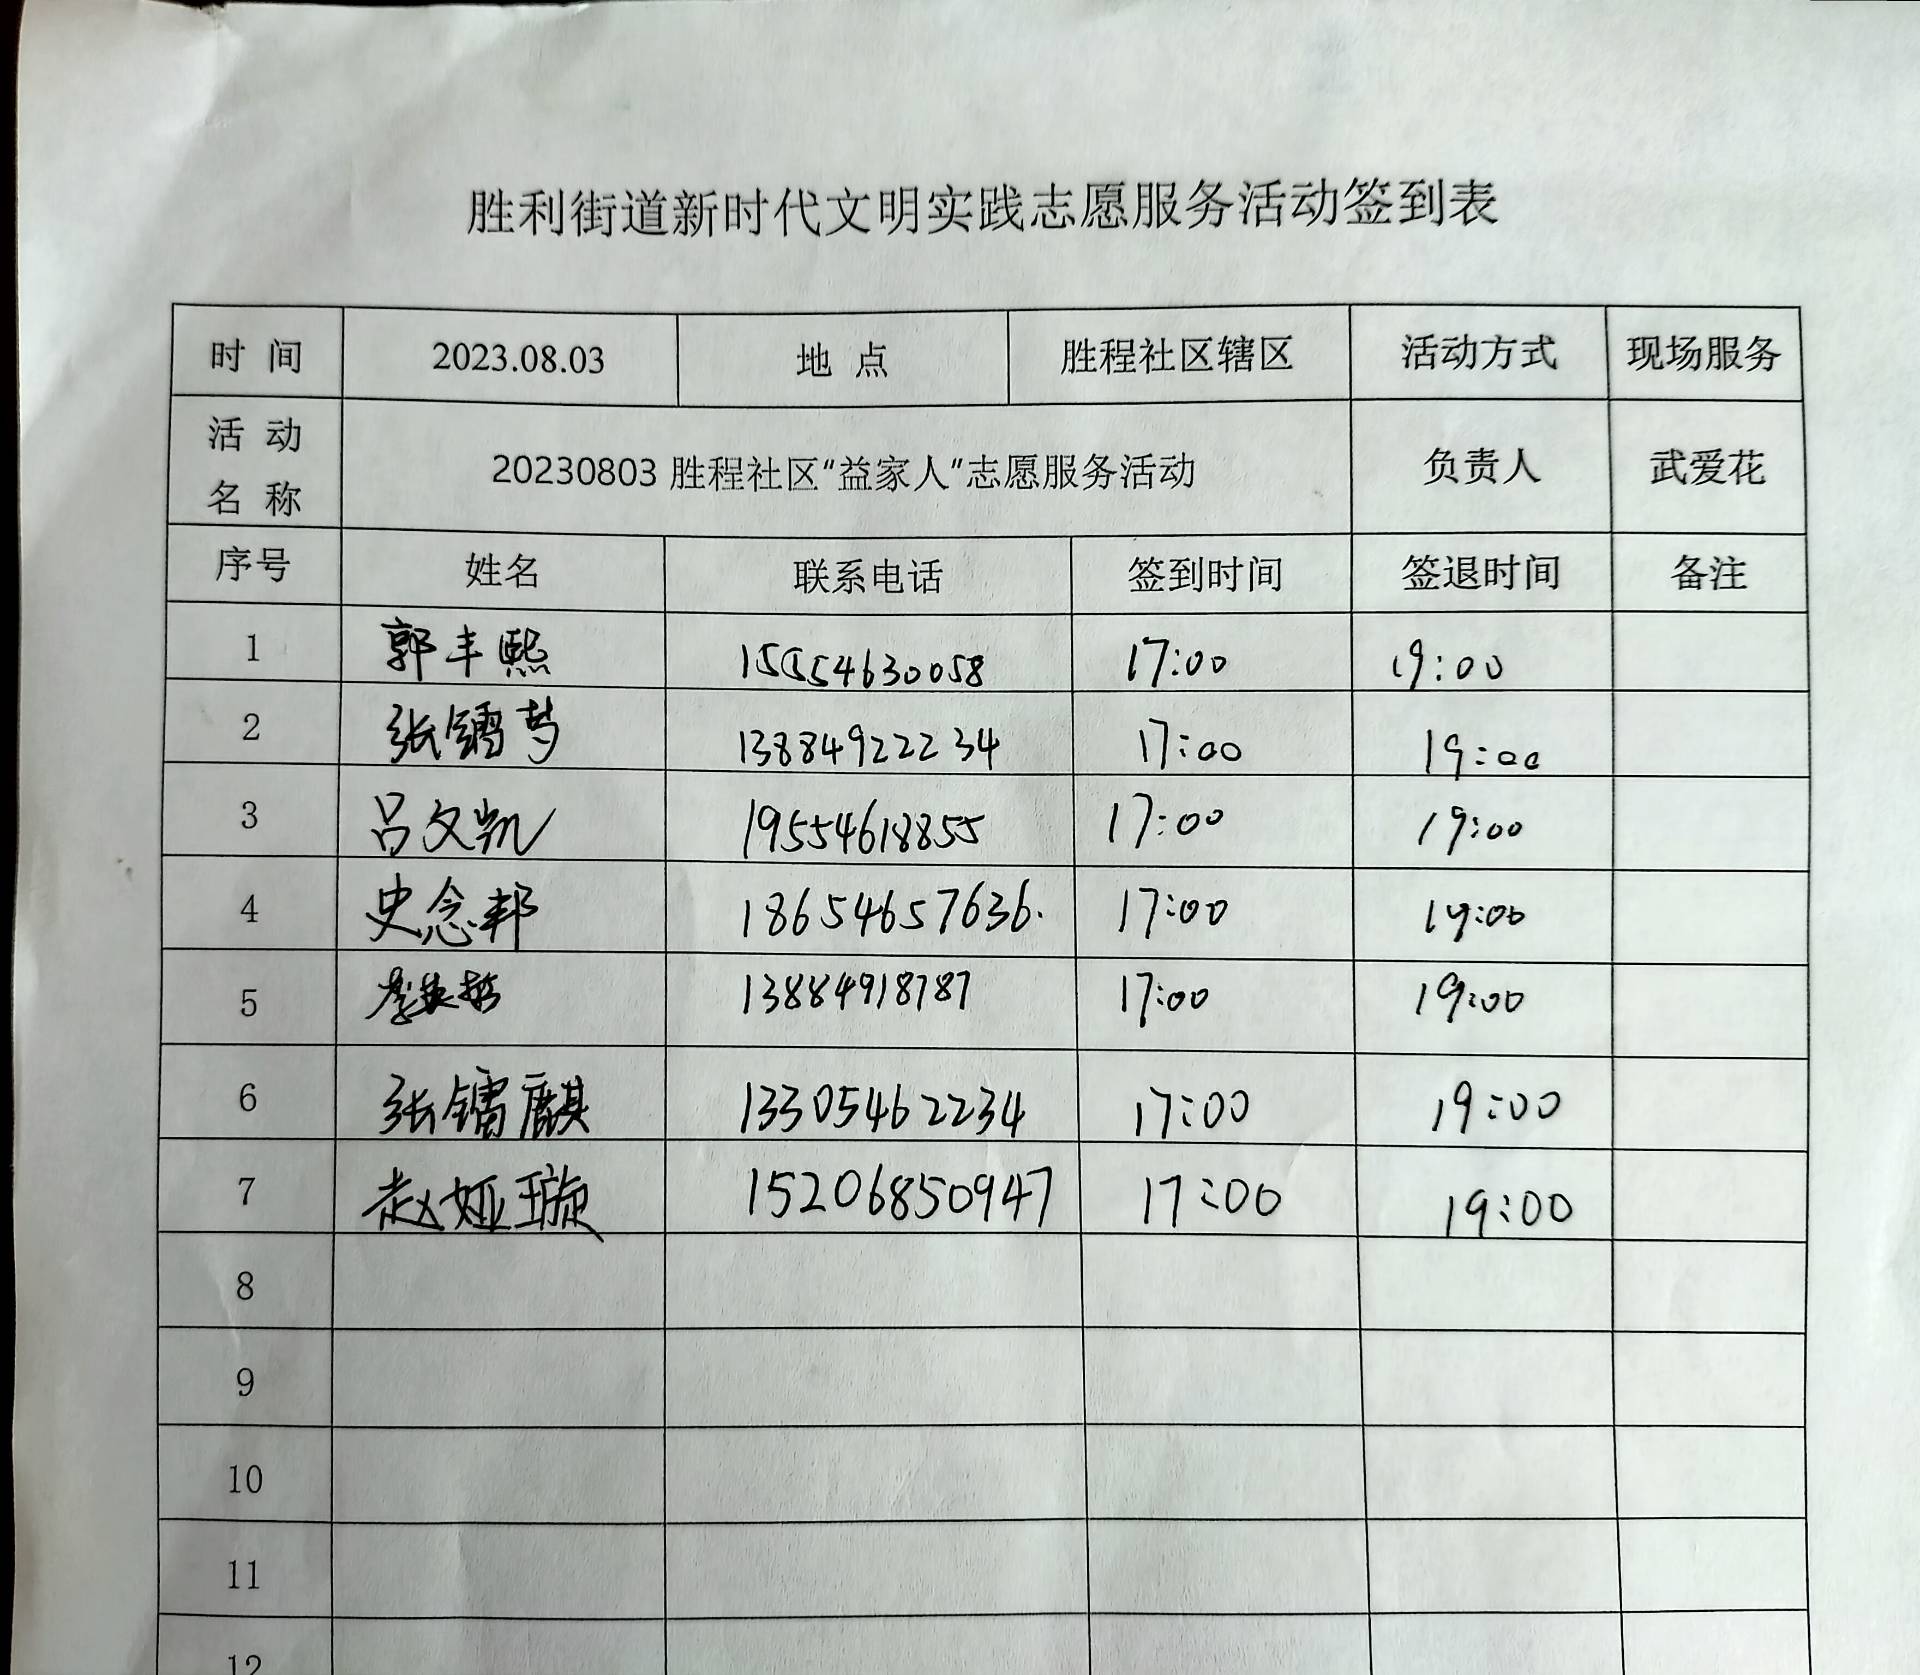 胜利街道新时代文明实践志愿服务活动签到表
时 间 2023.08.03 地 点 胜程社区辖区 活动方式 现场服务
活 动
名 称 20230803 胜程社区“益家人”志愿服务活动 负责人 武爱花
序号 姓名 联系电话 签到时间 签退时间 备注
1 郭丰熙 15554630058 17:00 19:00
2 张镭梦 13884922234 17:00 19:00
3 吕文凯 19554618855 17:00 19:00
4 史念邦 18654657636. 17:00 19:00
5 13884918787 17:00 19:00
6 张镭麒 13305462234 17:00 19:00
7 赵娅璇 15206850947 17:00 19:00
8
9
10
11
12